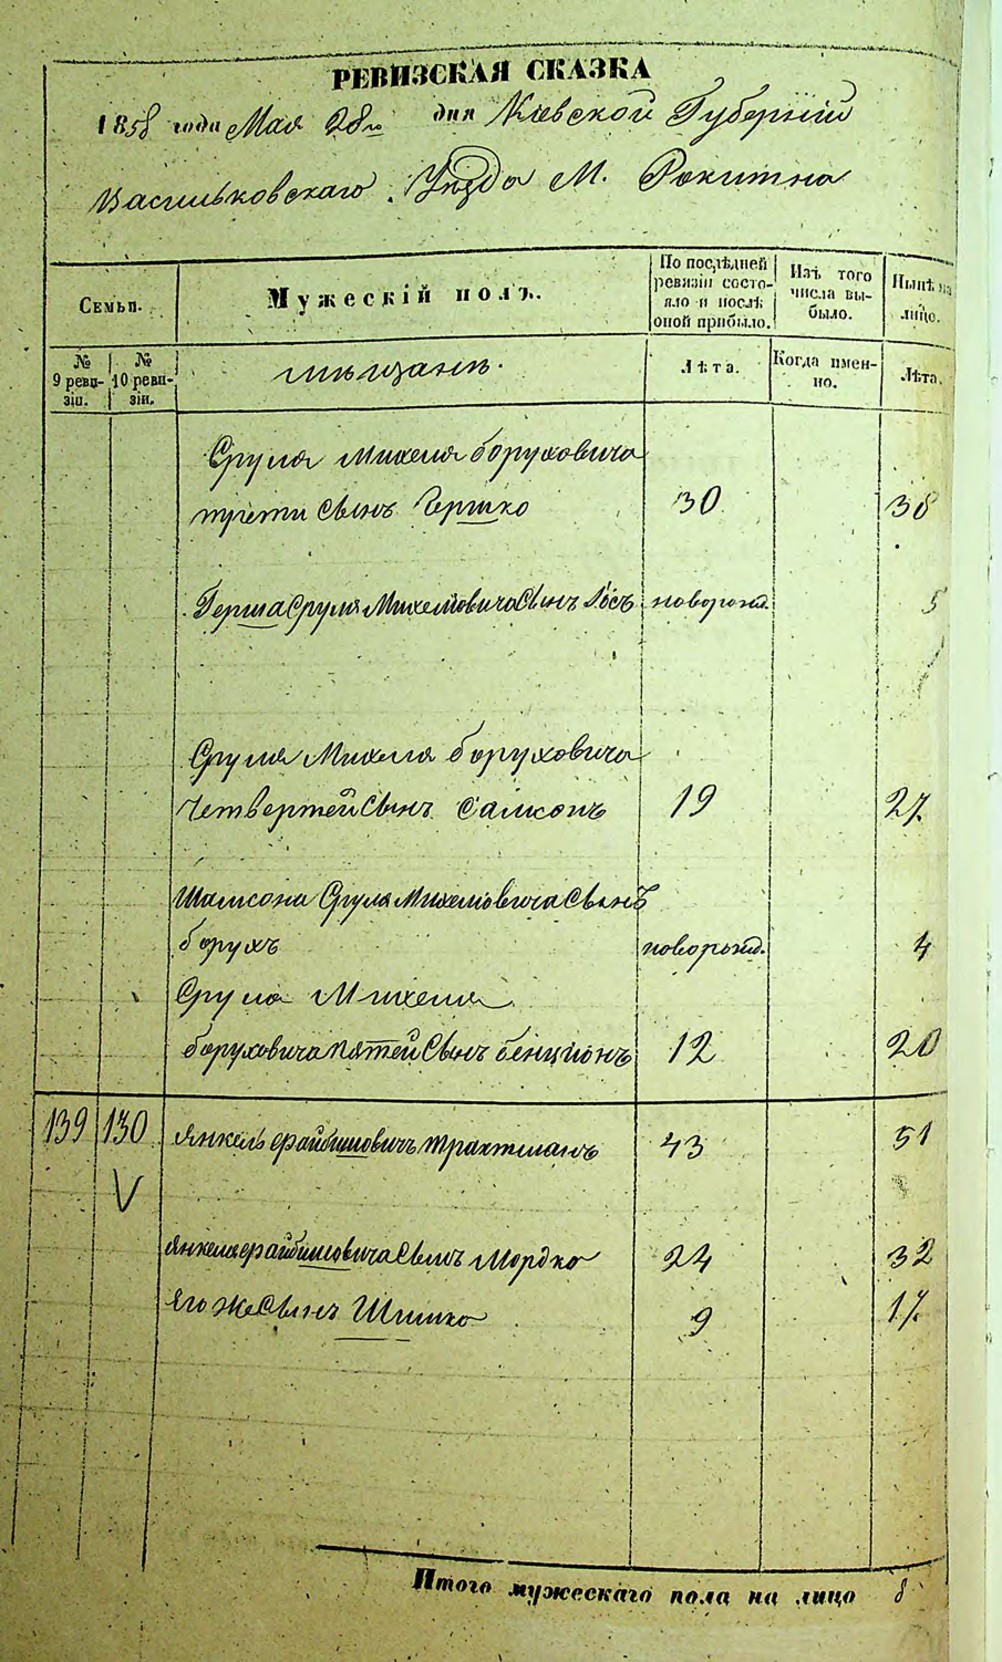 РЕВИЗСКАЯ СКАЗКА
1858 года Мая 28го дня Кіевской Губерніи
Васильковскаго Уѣзда М. Рокитна
Семьи.
Мужескій полъ.
По послѣдней ревизіи состояло и послѣ оной прибыло.
Изъ того числа выбыло.
Нынѣ на лицо.
№ 9 ревизіи.
№ 10 ревизіи.
мѣщане.
Лѣта.
Когда именно.
Лѣта.
Сруля Михеля Боруховича
трети Сынъ Гершко 30 38
Герша Сруля Михелiовича Сынъ Iосъ новорожд. 5
Сруля Михеля Боруховича
Четвертей Сынъ Самсонъ 19 27
Шамсона Сруля Михелiовича Сынъ
Борухъ новорожд. 4
Сруля Михеля
Боруховича пятей Сынъ Бенцiонъ 12 20
139 130 Янкель Файбишовичъ Трахтманъ 43 51
V
Янкеля Файбишовича Сынъ Мордко 24 32
Яго же Сынъ Шимко 9 17
Итого мужескаго пола на лицо 8